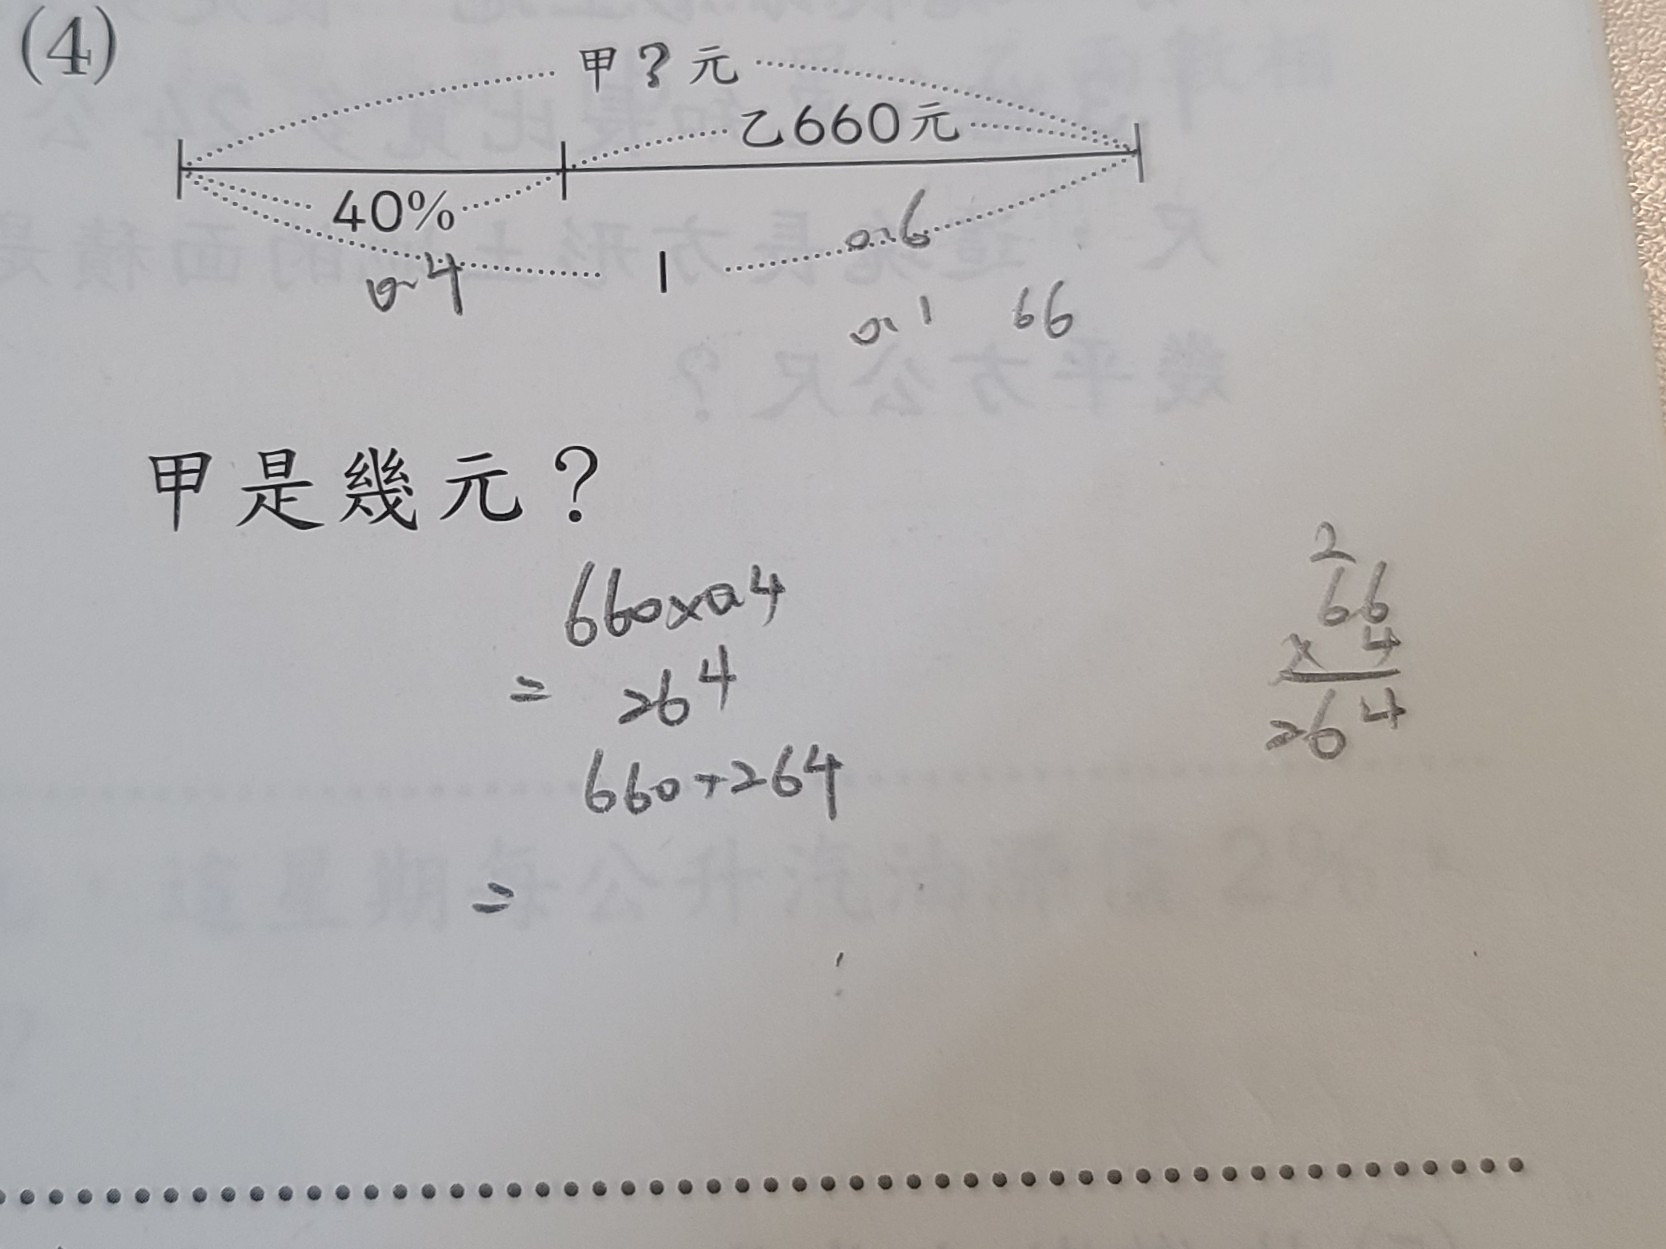 (4)
甲？元
乙660元
40%
0.6
0.4
1
0.1 66
甲是幾元？
660×0.4
= 264
660+264
=
2
66
× 4
264